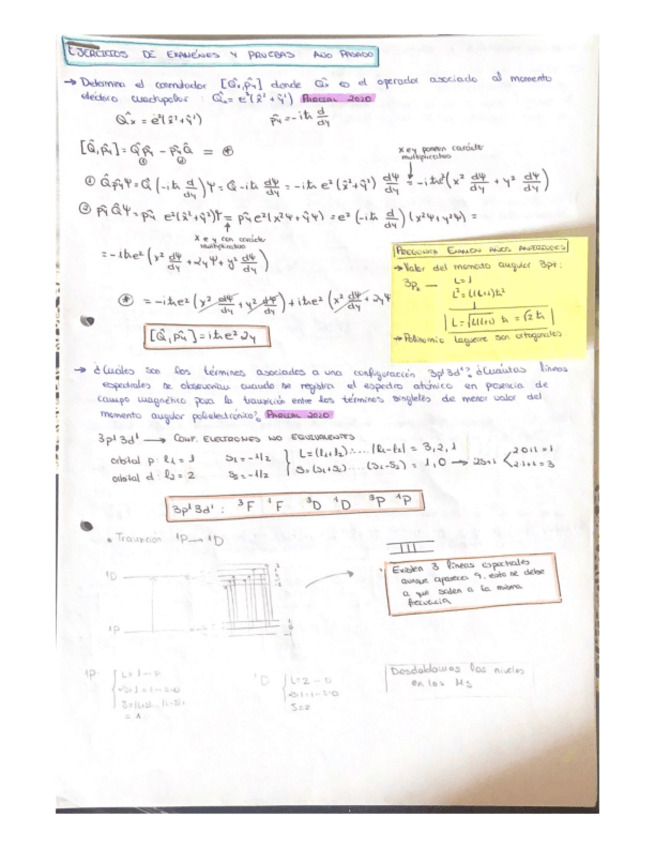 EJERCICIOS DE EXAMENES Y PRUEBAS AÑO PASADO
→ Determina el conmutador [Q̂x, p̂y] donde Q̂x es el operador asociado al momento
electrico cuadrupolar: Q̂x = e²(x̂²+ŷ²) PARCIAL 2020
Q̂x = e²(x̂²+ŷ²) p̂y = -iħ d/dy
[Q̂, p̂y] = Q̂p̂y - p̂yQ̂ = ⊛
① ②
x e y poseen carácter
multiplicativo
① Q̂p̂yΨ = Q̂(-iħ d/dy)Ψ = Q̂ -iħ dΨ/dy = -iħe²(x̂²+ŷ²) dΨ/dy = -iħe²(x² dΨ/dy + y² dΨ/dy)
② p̂yQ̂Ψ = p̂y e²(x̂²+ŷ²)Ψ = p̂y e²(x²Ψ+y²Ψ) = e²(-iħ d/dy)(x²Ψ+y²Ψ) =
x e y con carácter
multiplicativo
= -iħe²(x² dΨ/dy + 2yΨ + y² dΨ/dy)
⊛ = -iħe²(x² dΨ/dy + y² dΨ/dy) + iħe²(x² dΨ/dy + 2yΨ
[Q̂, p̂y] = iħe² 2y
PREGUNTA EXAMEN AÑOS ANTERIORES
→ Valor del momento angular 3pz:
3pz — L=1
L² = L(L+1)ħ²
L = √L(L+1) ħ = √2 ħ
→ Polinomio Laguerre son ortogonales
→ ¿Cuáles son los términos asociados a una configuracción 3p¹3d¹? ¿Cuántas líneas
espectrales se observarían cuando se registra el espectro atómico en presencia de
campo magnético para la transición entre los términos singletes de menor valor del
momento angular polielectrónico? PARCIAL 2020
3p¹3d¹ → CONF. ELECTRONES NO EQUIVALENTES
orbital p: l₁ = 1 s₁ = 1/2 L = (l₁+l₂)...|l₁-l₂| = 3, 2, 1
orbital d: l₂ = 2 s₂ = 1/2 S = (s₁+s₂)...(s₁-s₂) = 1, 0 → 2s+1 2·0+1 = 1
2·1+1 = 3
3p¹3d¹: ³F ¹F ³D ¹D ³P ¹P
• Transición ¹P → ¹D
¹D
¹P
Existen 3 líneas espectrales
aunque aparecen 9, esto se debe
a que salen a la misma
frecuencia
¹P: L=1
¹D L=2
Desdoblamos los niveles
en los Ms